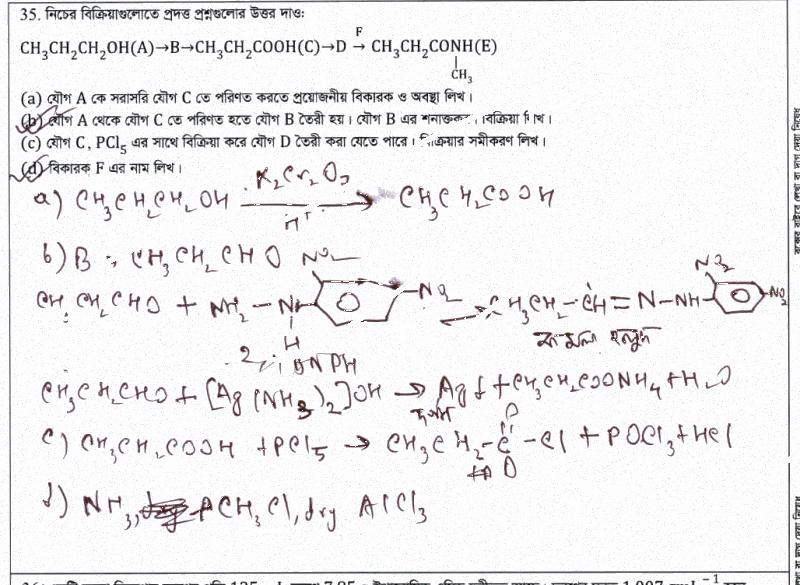 35. নিচের বিক্রিয়াগুলোতে প্রদত্ত প্রশ্নগুলোর উত্তর দাও:
CH₃CH₂CH₂OH(A)→B→CH₃CH₂COOH(C)→D →F CH₃CH₂CONH(E)
CH₃
(a) যৌগ A কে সরাসরি যৌগ C তে পরিণত করতে প্রয়োজনীয় বিকারক ও অবস্থা লিখ।
(b) যৌগ A থেকে যৌগ C তে পরিণত হতে যৌগ B তৈরী হয়। যৌগ B এর বিক্রিয়া লিখ।
(c) যৌগ C, PCl₅ এর সাথে বিক্রিয়া করে যৌগ D তৈরী করা যেতে পারে। বিক্রিয়ার সমীকরণ লিখ।
(d) বিকারক F এর নাম লিখ।
a) CH₃CH₂CH₂OH K₂Cr₂O₇ H⁺ → CH₃CH₂COOH
b) B : CH₃CH₂CHO NO₂ NO₂
CH₃CH₂CHO + NH₂-N- -NO₂ ⇌ CH₃CH₂-CH=N-NH- -NO₂
H হলুদ
2,4 DNPH
CH₃CH₂CHO + [Ag(NH₃)₂]OH → Ag↓ + CH₃CH₂COONH₄ + H₂O
দর্পণ
c) CH₃CH₂COOH + PCl₅ → CH₃CH₂-C-Cl + POCl₃ + HCl
O
D
d) NH₃, CH₃Cl, dry AlCl₃